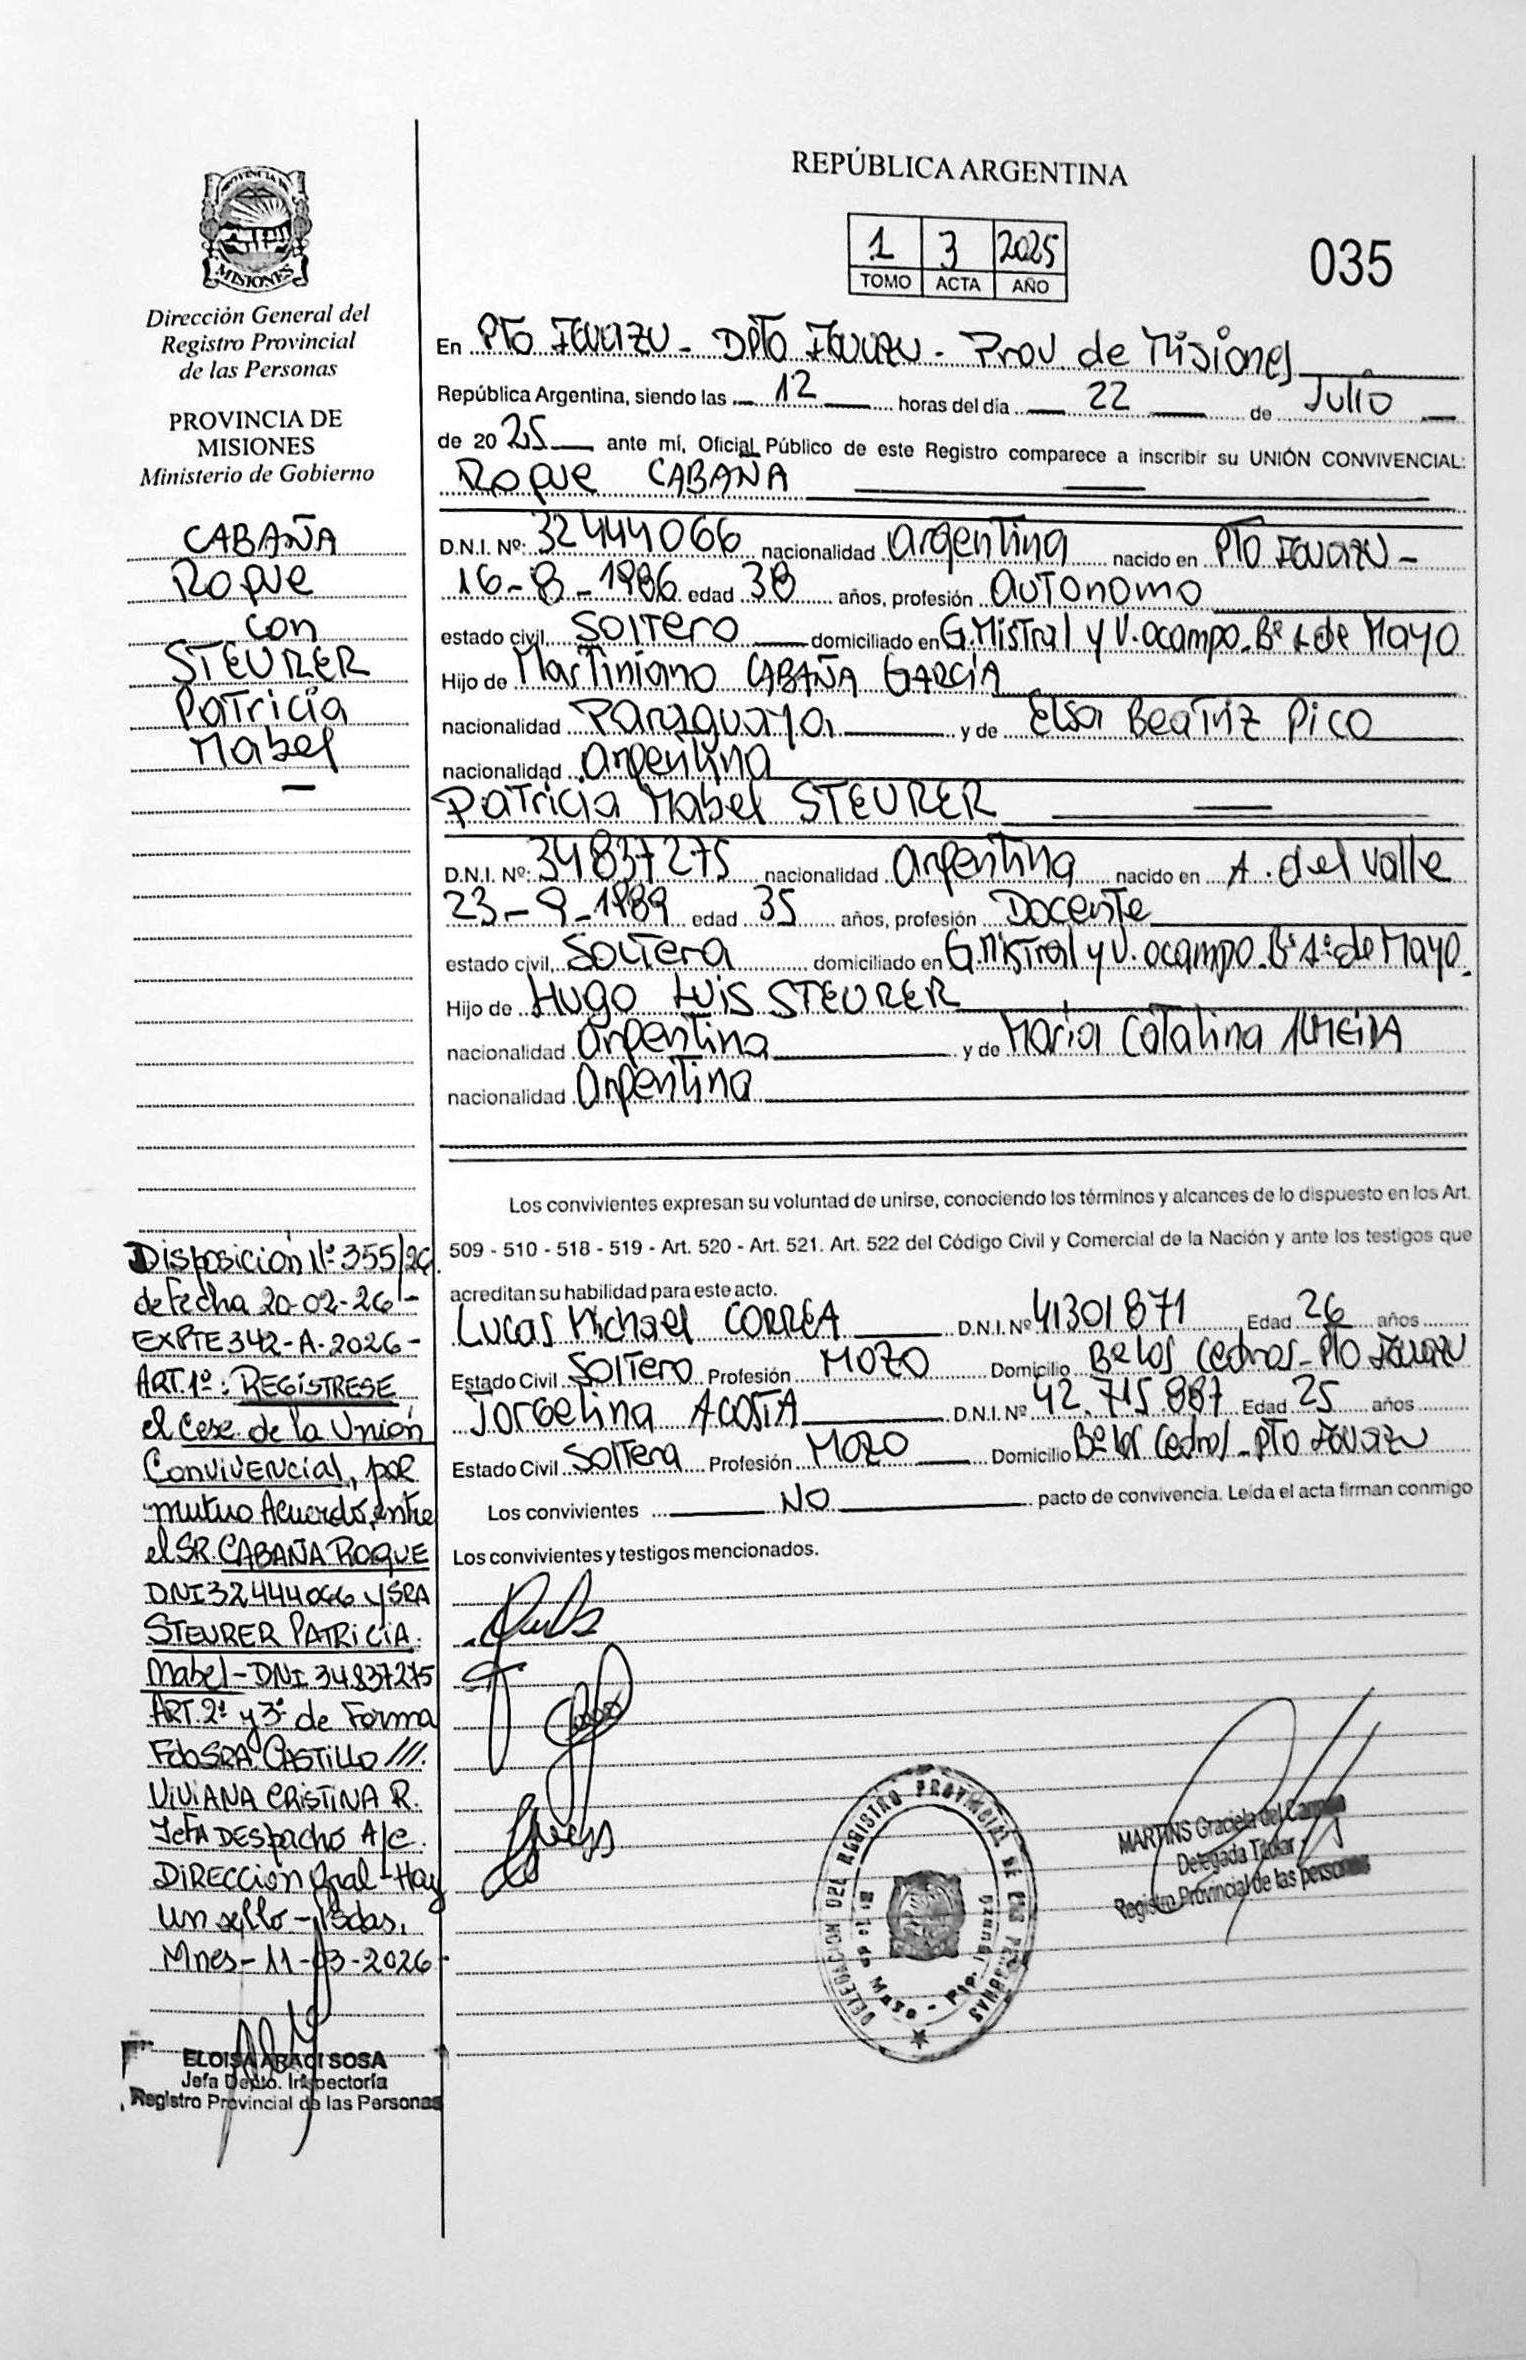 REPÚBLICA ARGENTINA
1 3 2025
TOMO ACTA AÑO
035
PROVINCIA DE
MISIONES
Dirección General del
Registro Provincial
de las Personas
PROVINCIA DE
MISIONES
Ministerio de Gobierno
CABAÑA
Roque
con
STEURER
Patricia
Mabel
En Pto Iguazu - Dpto Iguazu - Prov. de Misiones
República Argentina, siendo las 12 horas del día 22 de Julio
de 2025 ante mí, Oficial Público de este Registro comparece a inscribir su UNIÓN CONVIVENCIAL:
Roque CABAÑA
D.N.I. Nº: 32444066 nacionalidad argentina nacido en Pto Iguazu -
16-8-1986 edad 38 años, profesión autonomo
estado civil, Soltero domiciliado en G. Mistral y V. ocampo. Bº 1 de Mayo
Hijo de Martiniano CABAÑA GARCÍA
nacionalidad Paraguaya y de Elsa Beatriz Pico
nacionalidad argentina
Patricia Mabel STEURER
D.N.I. Nº: 34837275 nacionalidad argentina nacido en A. del Valle
23-9-1989 edad 35 años, profesión Docente
estado civil, Soltera domiciliado en G. Mistral y V. ocampo. Bº 1º de Mayo.
Hijo de Hugo Luis STEURER
nacionalidad argentina y de Maria Catalina ALMEIDA
nacionalidad argentina
Los convivientes expresan su voluntad de unirse, conociendo los términos y alcances de lo dispuesto en los Art.
509 - 510 - 518 - 519 - Art. 520 - Art. 521. Art. 522 del Código Civil y Comercial de la Nación y ante los testigos que
acreditan su habilidad para este acto.
Lucas Michael CORREA D.N.I. Nº 41301871 Edad 26 años
Estado Civil Soltero Profesión Mozo Domicilio Bº Los Cedros - Pto Iguazu
Jorgelina ACOSTA D.N.I. Nº 42.715.887 Edad 25 años
Estado Civil Soltera Profesión Mozo Domicilio Bº los Cedros - Pto Iguazu
Los convivientes NO pacto de convivencia. Leída el acta firman conmigo
Los convivientes y testigos mencionados.
Disposición Nº 355/26
de fecha 20-02-26 -
EXPTE 342-A-2026 -
ART. 1º: REGISTRESE
el Cese de la Unión
Convivencial, por
mutuo Acuerdo, entre
el SR. CABAÑA ROQUE
DNI 32444066 y SRA
STEURER PATRICIA
Mabel - DNI 34837275
ART. 2º y 3º de Forma
Fdo SRA. CASTILLO ///.
VIVIANA CRISTINA R.
Jefa Despacho A/C.
DIRECCIÓN Gral - Hay
un sello - Psdas,
Mnes - 11-03-2026
ELOISA ARACI SOSA
Jefa Depto. Inspectoría
Registro Provincial de las Personas
DELEGACION DEL REGISTRO PROVINCIAL DE LAS PERSONAS
Bº 1º de Mayo - Pto. Iguazu
MARTINS Graciela del Carmen
Delegada Titular
Registro Provincial de las personas